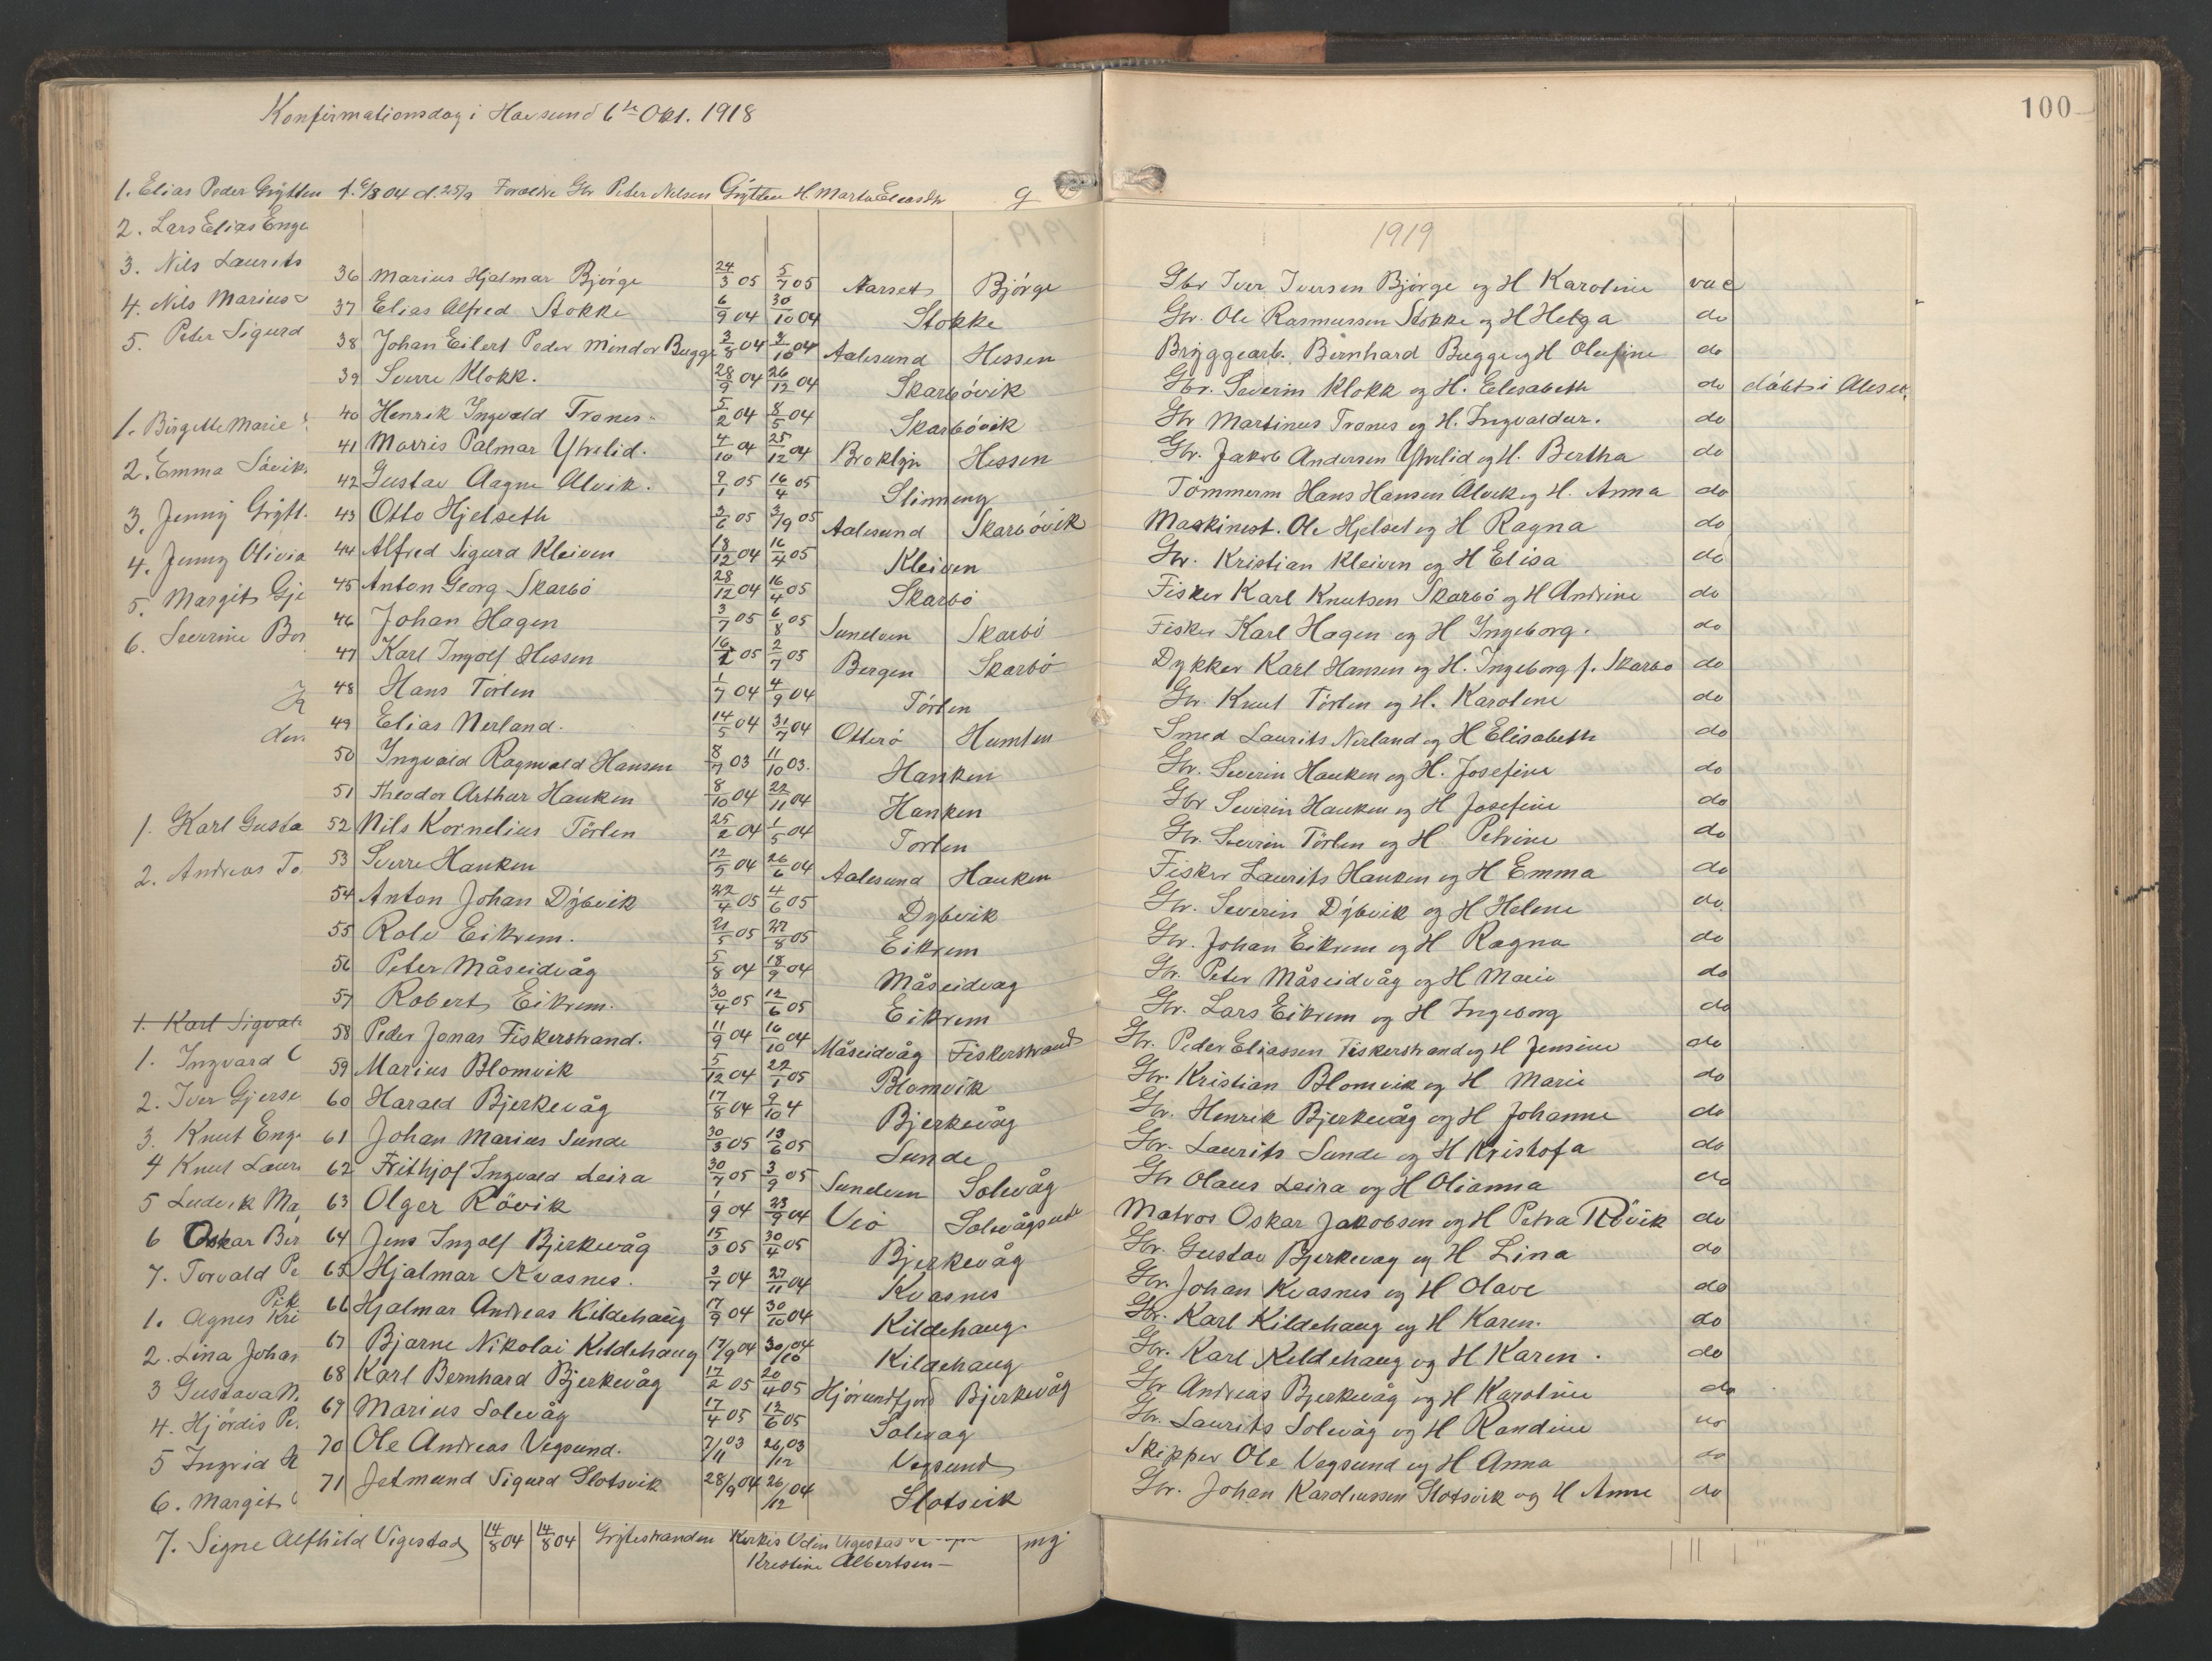 100
Konfirmationsdag i Havsund 6te Okt. 1918
1. Elias Peder Grytten f. 6/8 04 d. 25/9 Foreldre Gbr Peder Nelsen Grytten H. Marta Eliasdtr g
2. Lars Elias Enge
3. Nils Laurits
4. Nils Marius
5. Peter Sigurd
1. Birgette Marie
2. Emma Søvik
3. Jenny Grytt
4. Jenny Olivia
5. Margit Gje
6. Severine Bor
den
1. Karl Gusta
2. Andreas To
1. Karl Sigval
1. Ingvard
2. Iver Gjerse
3. Knut Eng
4 Knut Laur
5 Ludvik Ma
6 Oskar Ber
7. Torvald Pe
Pik
1. Agnes Kri
2. Lina Johan
3 Gustava M
4. Hjördis Pe
5 Ingrid H
6. Margit
7. Signe Alfhild Vigestad 14/8 04 14/8 04 Grytestranden Kirkes Odin Vigestad mg
Kristine Albertsen
1919
36 Marius Hjalmar Bjørge 24/3 05 5/7 05 Aarset Bjørge Gbr Iver Iversen Bjørge og H Karoline vac
37 Elias Alfred Stokke 6/9 04 30/10 04 Stokke Gbr. Ole Rasmussen Stokke og H Helga do
38 Johan Eilert Peder Mindor Bugge 3/8 04 3/10 04 Aalesund Hessen Bryggearb. Bernhard Bugge og H Olufine do
39 Sverre Klokk. 28/9 04 26/12 04 Skarbövik Gbr. Severin Klokk og H. Elesabeth do döbt i Alesd.
40 Henrik Ingvald Trones 5/2 04 8/5 04 Skarbövik Gbr Martinus Trones og H. Ingvaldur. do
41 Morris Palmar Ytrelid. 4/10 04 25/12 04 Broklyn Hessen Gbr. Jakob Andersen Ytrelid og H. Bertha do
42 Gustav Aagne Alvik. 9/1 05 16/4 05 Slinneng Tömmerm Hans Hansen Alvik og H. Anna do
43 Otto Hjelseth 3/6 05 3/9 05 Aalesund Skarbövik Maskinest. Ole Hjelset og H Ragna do
44 Alfred Sigurd Kleiven 18/12 04 16/4 05 Kleiven Gbr. Kristian Kleiven og H Elisa do
45 Anton Georg Skarbö 28/12 04 16/4 05 Skarbö Fisker Karl Knutsen Skarbö og H Andrine do
46 Johan Hagen 3/7 05 6/8 05 Sundven Skarbö Fisker Karl Hagen og H Ingeborg. do
47 Karl Ingolf Hessen 16/2 05 2/7 05 Bergen Skarbö Dykker Karl Hansen og H. Ingeborg f. Skarbo do
48 Hans Törlen 1/7 04 4/9 04 Törlen Gbr. Knut Törlen og H. Karolene do
49 Elias Nerland. 14/5 04 31/7 04 Otterö Humlen Smed Laurits Nerland og H Elisabeth do
50 Ingvald Ragnvald Hansen 8/7 03 11/10 03. Hanken Gbr. Severin Hauken og H. Josefine do
51 Theodor Arthur Hauken 8/10 04 22/11 04 Hanken Gbr Severin Hauken og H Josefine do
52 Nils Kornelius Törlen 25/2 04 1/5 04 Torlen Gbr. Severin Törlen og H Petrine do
53 Sverre Hauken 12/5 04 26/6 04 Aalesund Hauken Fisker Laurits Hauken og H Emma do
54 Anton Johan Dybvik 22/4 05 4/6 05 Dybvik Gbr. Severin Dybvik og H Helene do
55 Rolv Eikrem. 21/5 05 27/8 05 Eikrem Gbr. Johan Eikrem og H Ragna do
56 Peter Måseidvåg 5/8 04 18/9 04 Måseidvag Gbr. Peter Måseidvåg og H Marie do
57 Robert Eikrem. 30/4 05 12/6 05 Eikrem Gbr. Lars Eikrem og H Ingeborg do
58 Peder Jonas Fiskerstrand. 11/9 04 16/10 04 Måseidvåg Fiskerstrand Gbr. Peder Eliassen Fiskerstrand og H Jensine do
59 Marius Blomvik 5/12 04 22/1 05 Blomvik Gbr. Kristian Blomvik og H Marie do
60 Harald Bjerkevåg 17/8 04 9/10 4 Bjerkevåg Gbr. Henrik Bjerkevåg og H Johanne do
61 Johan Marius Sunde 30/3 05 13/6 05 Sunde Gbr. Laurits Sunde og H Kristofa do
62 Frithjof Ingvald Leira 30/7 05 3/9 05 Sundven Solevåg Gbr Olaus Leira og H Olianna do
63 Olger Rövik 1/9 04 23/9 04 Veö Solevågseide Matros Oskar Jakobsen og H Petra Rövik do
64 Jens Ingolf Bjerkevåg 15/3 05 30/4 05 Bjerkevåg Gbr. Gustav Bjerkevag og H Lina do
65 Hjalmar Kvasnes. 3/7 04 27/11 04 Kvasnes Gbr. Johan Kvasnes og H Olave do
66 Hjalmar Andreas Kildehaug 17/9 04 30/10 04 Kildehaug Gbr. Karl Kildehaug og H Karen. do
67 Bjarne Nikolai Kildehaug 17/9 04 30/10 04 Kildehaug Gbr. Karl Kildehaug og H Karen. do
68 Karl Bernhard Bjerkevåg 17/2 05 20/4 05 Hjörundfjord Bjerkevåg Gbr Andreas Bjerkevåg og H Karoline do
69 Marius Solevåg 17/4 05 12/6 05 Solevag Gbr. Laurits Solevåg og H Randine do
70 Ole Andreas Vegsund. 7/11 03 26/12 03 Vegsund Skipper Ole Vegsund og H Anna do
71 Jetmund Sigurd Slotsvik 28/9 04 26/12 04 Slotsvik Gbr. Johan Karoliussen Slotsvik og H Anne do